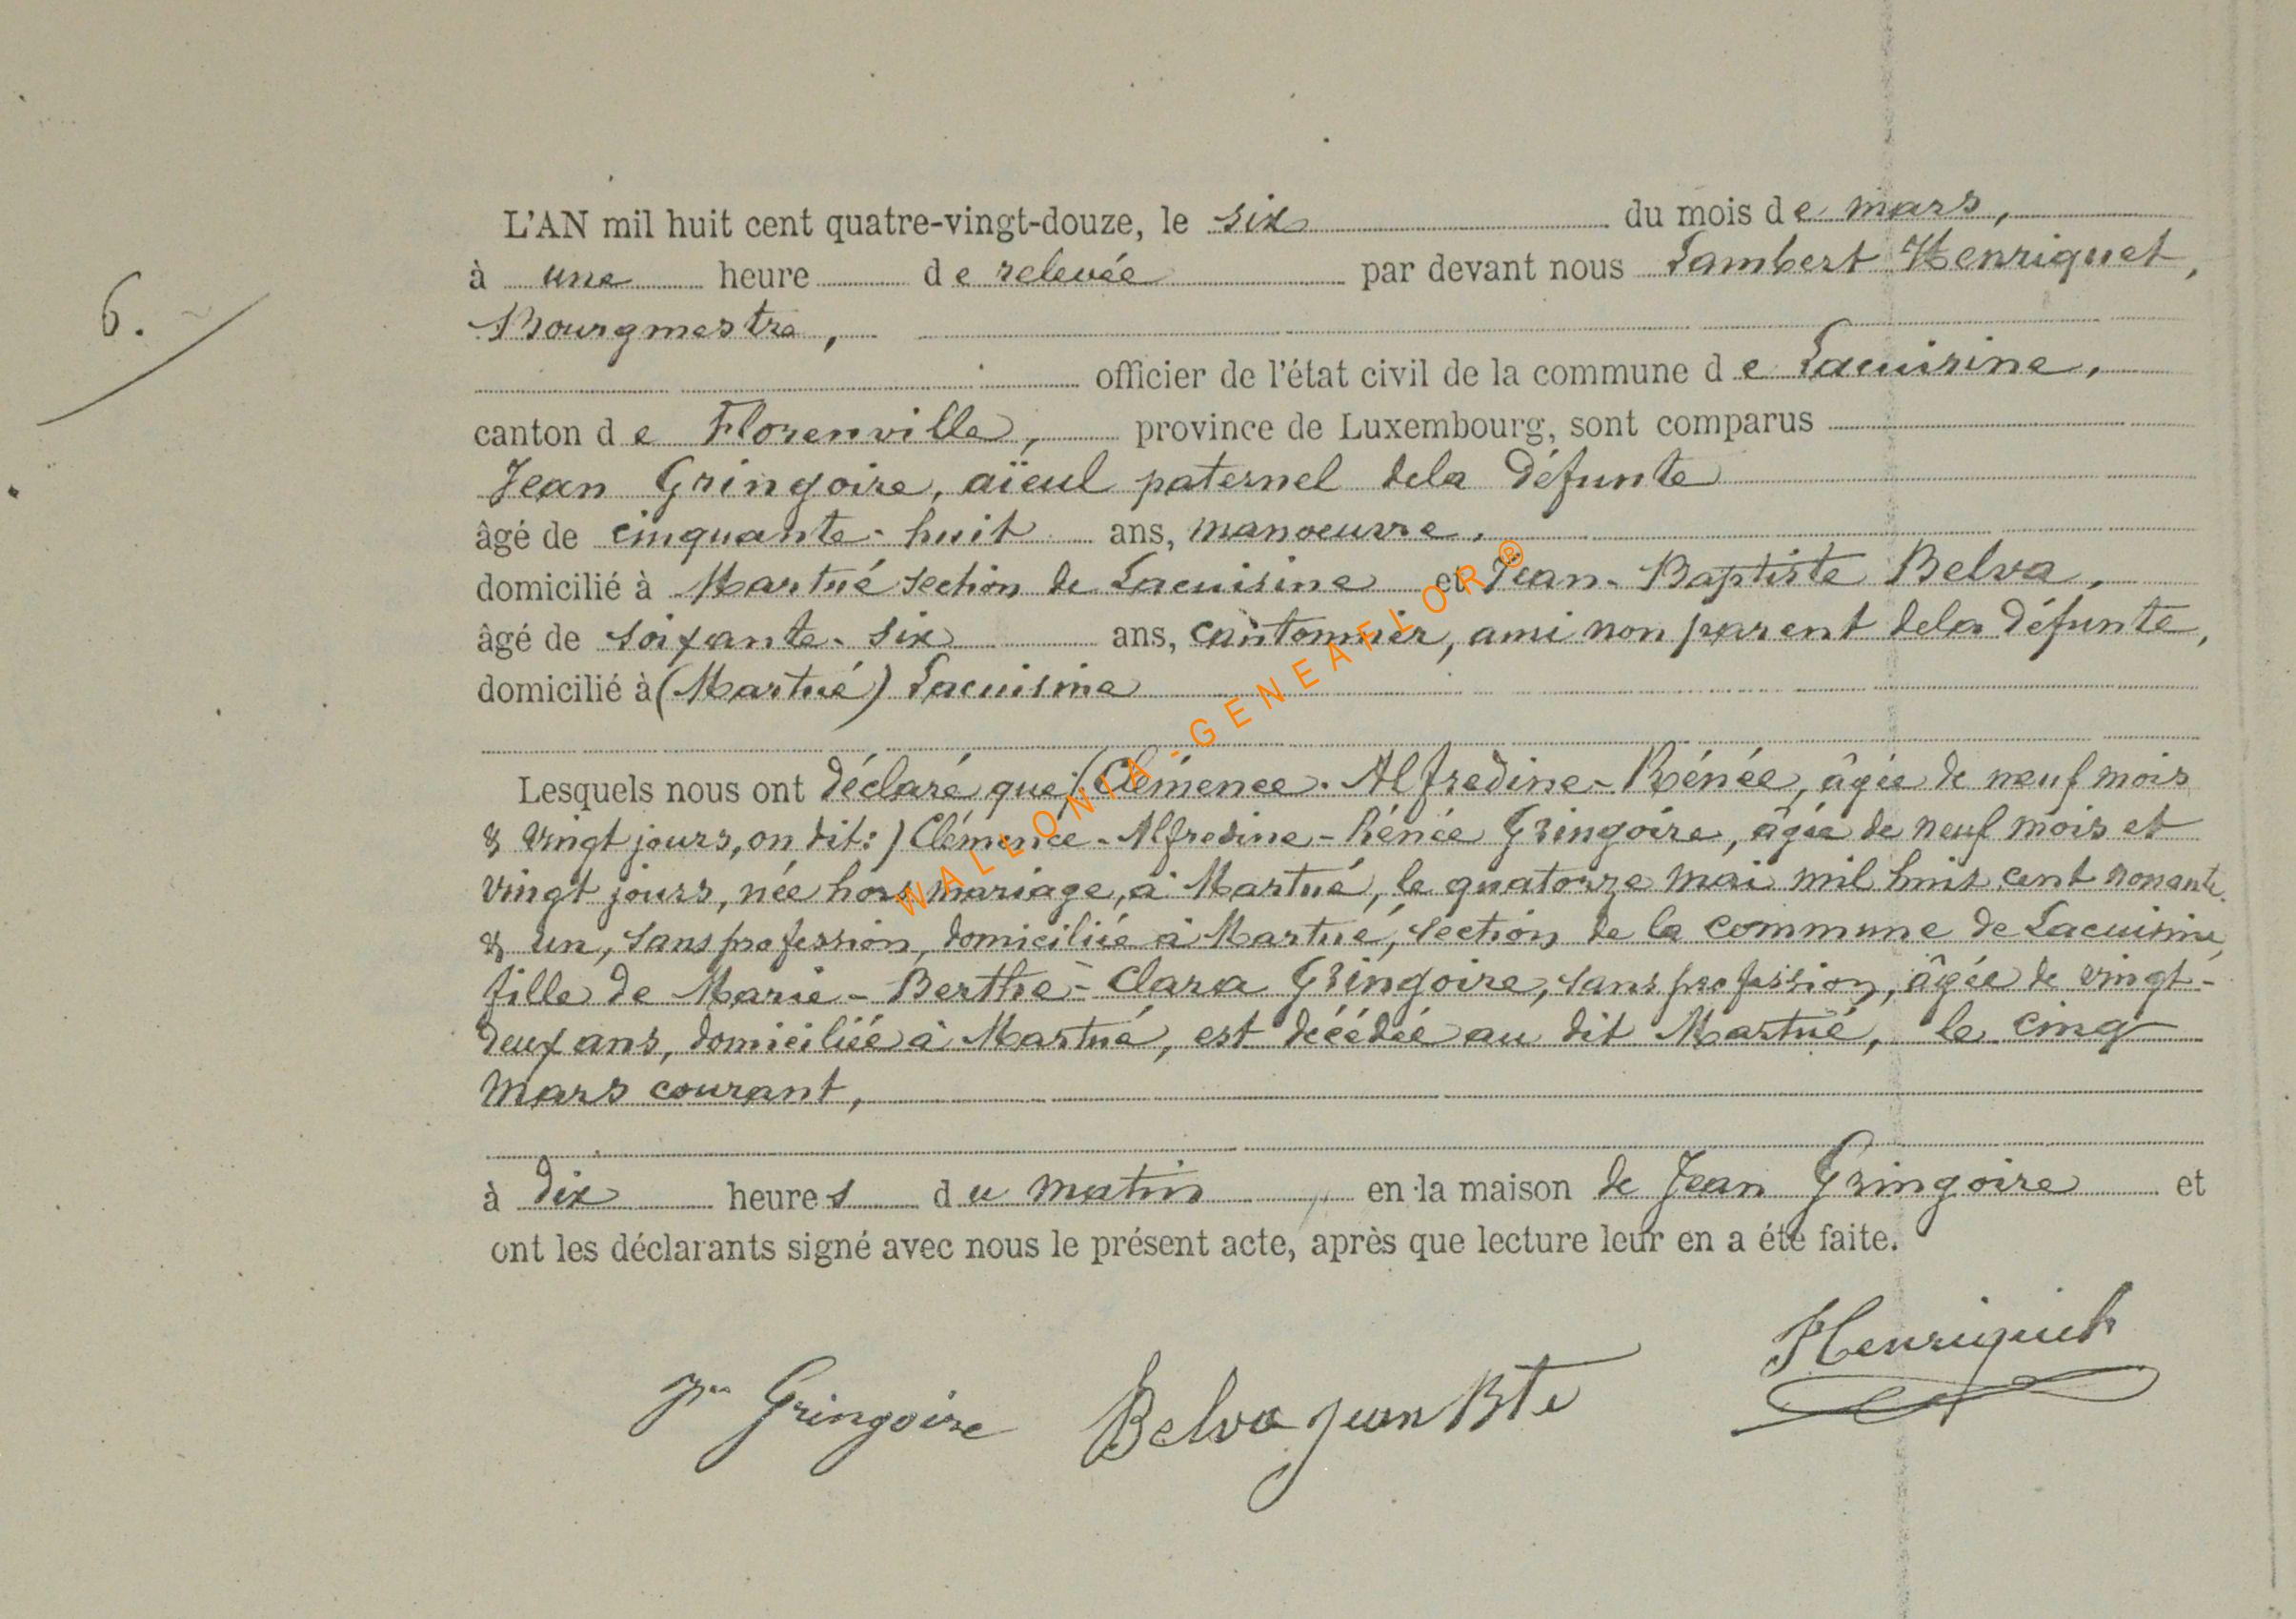 L'AN mil huit cent quatre-vingt-douze, le six du mois de mars,
à une heure de relevée par devant nous Lambert Henriquet,
Bourgmestre,
6.
officier de l'état civil de la commune de Lacuisine,
canton de Florenville, province de Luxembourg, sont comparus
Jean Gringoire, aïeul paternel dela défunte
âgé de cinquante-huit ans, manoeuvre,
domicilié à Martué section de Lacuisine et Jean-Baptiste Belva,
âgé de soixante-six ans, cantonnier, ami non parent dela défunte,
domicilié à (Martué) Lacuisine
Lesquels nous ont déclaré que (Clémence-Alfredine-Rénée, âgée de neuf mois
& vingt jours, on dit:) Clémence-Alfredine-Rénée Gringoire, âgée de neuf mois et
vingt jours, née hors mariage, à Martué, le quatorze mai mil huit cent nonante
& un, sans profession, domiciliée à Martué, section de la commune de Lacuisine,
fille de Marie-Berthe-Clara Gringoire, sans profession, âgée de vingt-
deux ans, domiciliée à Martué, est décédée au dit Martué, le cinq
mars courant,
à dix heures du matin en la maison de Jean Gringoire et
ont les déclarants signé avec nous le présent acte, après que lecture leur en a été faite.
Jn Gringoire Belva Jean Bte Henriquet
WALLONIA-GENEAFLOR®